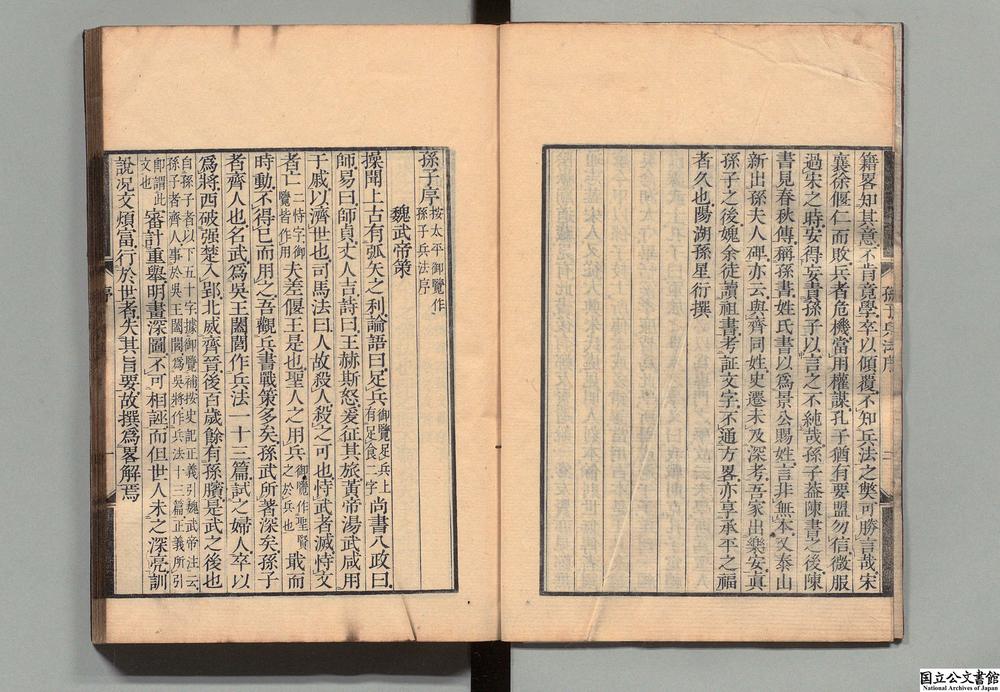 孫子兵法序
籍畧知其意不肯竟學卒以傾覆不知兵法之獘可勝言哉宋
襄徐偃仁而敗兵者危機當用權謀孔子猶有要盟勿信微服
過宋之時安得妄責孫子以言之不純哉孫子葢陳書之後陳
書見春秋傳稱孫書姓氏書以爲景公賜姓言非無本又泰山
新出孫夫人碑亦云與齊同姓史遷未及深考吾家出樂安眞
孫子之後媿余徒讀祖書考証文字不通方畧亦享承平之福
者久也陽湖孫星衍撰
孫子序 按太平御覽作孫子兵法序
魏武帝策
操聞上古有弧矢之利論語曰足兵 御覽足兵上有足食二字 尚書八政曰
師易曰師貞丈人吉詩曰王赫斯怒爰征其旅黃帝湯武咸用
干戚以濟世也司馬法曰人故殺人殺之可也恃武者滅恃文
者亡 二恃字御覽皆作用 夫差偃王是也聖人之用兵 御覽作聖賢之於兵也 戢而
時動不得已而用之吾觀兵書戰策多矣孫武所著深矣孫子
者齊人也名武爲吳王闔閭作兵法一十三篇試之婦人卒以
爲將西破强楚入郢北威齊晉後百歲餘有孫臏是武之後也
自孫子者以下五十字據御覽補按史記正義引魏武帝注云
孫子者齊人事於吳王闔閭爲吳將作兵法十三篇正義所引
卽謂此文也 審計重舉明畫深圖不可相誣而但世人未之深亮訓
說况文煩富行於世者失其旨要故撰爲畧解焉
序
一
国立公文書館
National Archives of Japan